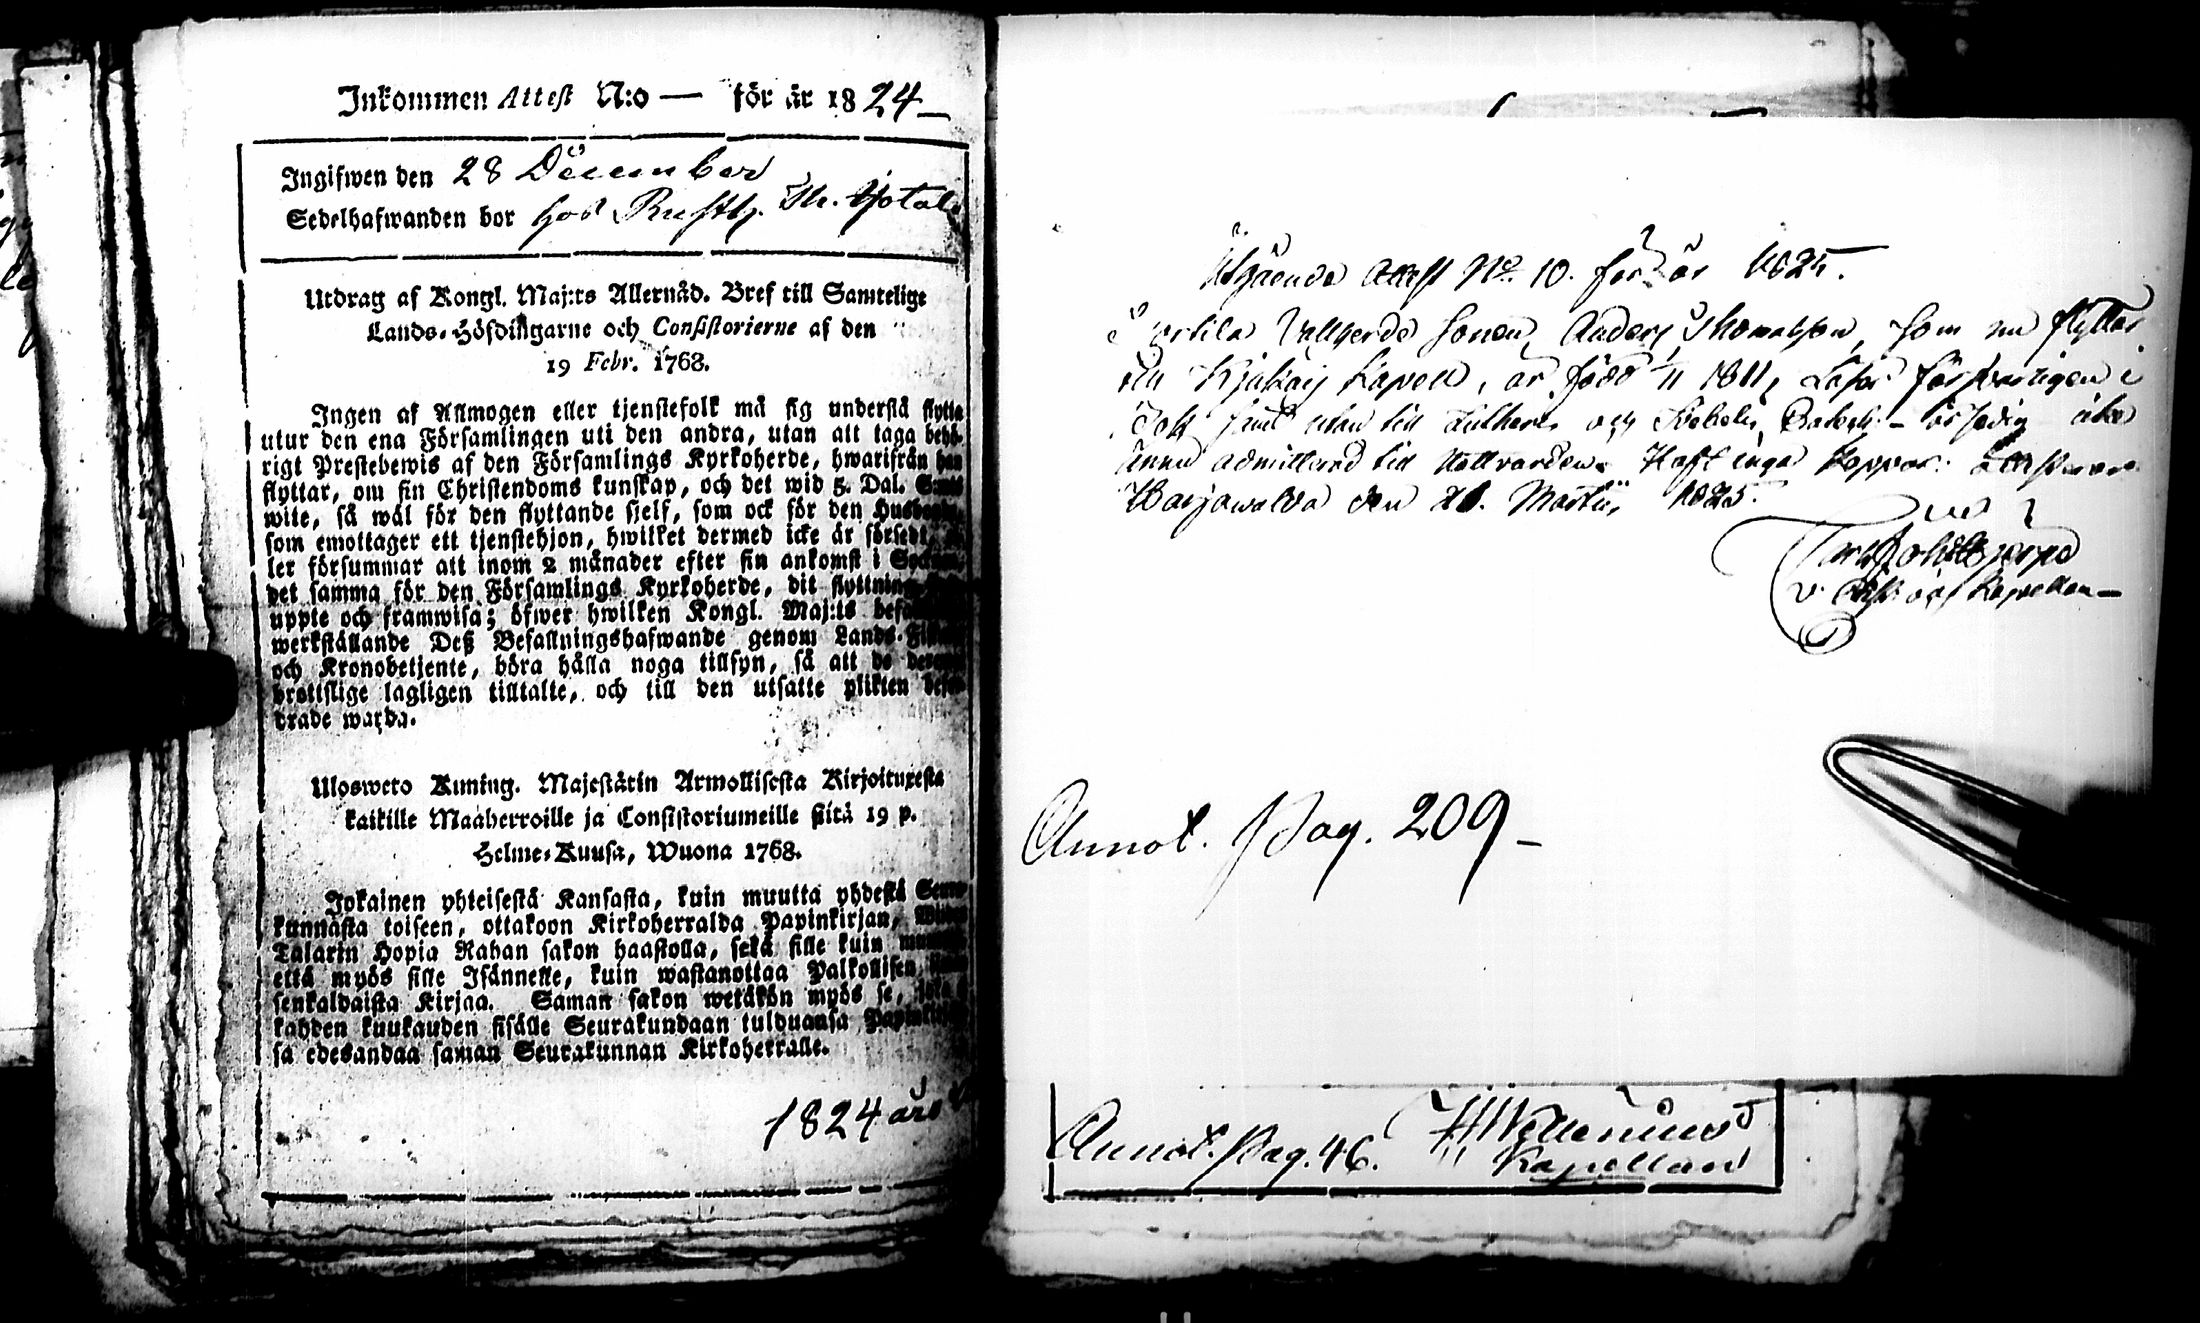 Inkommen Attest N:o — för år 1824
Ingifwen den 28 December
Sedelhafwanden bor hos Rusth.
Utdrag af Kongl. Maj:ts Allernåd. Bref till Samtelige
Lands-Höfdingarne och Consistorierne af den
19 Febr. 1768.
Ingen af Allmogen eller tjenstefolk må sig understå flytta
utur den ena Församlingen uti den andra, utan att taga behö-
rigt Prestebewis af den Församlings Kyrkoherde, hwarifrån han
flyttar, om sin Christendoms kunskap, och det wid 5. Dal. S:mts
wite, så wäl för den flyttande sjelf, som ock för den
som emottager ett tjenstehjon, hwilket dermed icke är försedt,
ler försummar att inom 2 månader efter sin ankomst i
det samma för den Församlings Kyrkoherde, dit
uppte och framwisa; öfwer hwilken Kongl. Maj:ts
werkställande Deß Befallningshafwande genom Lands-
och Kronobetjente, böra hålla noga tillsyn, så att de
brottslige lagligen tilltalte, och till den utsatte plikten
drade warda.
Uloswето Kuning. Majestätin Armollisesta Kirjoituxesta
kaikille Maaherroille ja Consistoriumeille siitä 19 p.
Helme-Kuusa, Wuona 1768.
Jokainen yhteisestä Kansasta, kuin muutta yhdestä Seura-
kunnasta toiseen, ottakoon Kirkoherralda Papinkirjan,
Talarin Hopia Rahan sakon haastolla, sekä sille kuin
että myös sille Isännelle, kuin wastanottaa Palkollisen
senkaldaista Kirjaa. Saman sakon wetäkön myös se,
kahden kuukauden sisälle Seurakundaan tulduansa
sa edesandaa saman Seurakunnan Kirkoherralle.
1824 års
Utgående Attest No 10. för år 1825.
Vallgerde sonen Anders Thomasson, som nu flyttar
till Kjukais Kapell, är född 1/11 1811, Läser försvarligen i
Bok samt utan till Lutheri och Svebelii
ännu admitterad till Nattvarden. Haft inga koppor.
Harjawalda den 21. Martii 1825.
v. Past. och Kapellan
Annot. Pag. 209
Annot. Pag. 46.
Kapellan